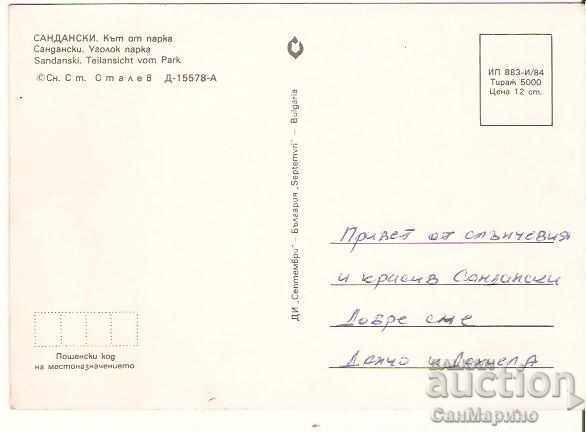 САНДАНСКИ. Кът от парка
Сандански. Уголок парка
Sandanski. Teilansicht vom Park
©Сн. Ст. Сталев Д-15578-А
ДИ „Септември" — България „Septemvri" — Bulgaria
ИП 883-И/84
Тираж 5000
Цена 12 ст.
Привет от слънчевия
и красив Сандански
Добре сме
Данчо и Даниела
Пощенски код
на местоназначението
auction
СанМарино